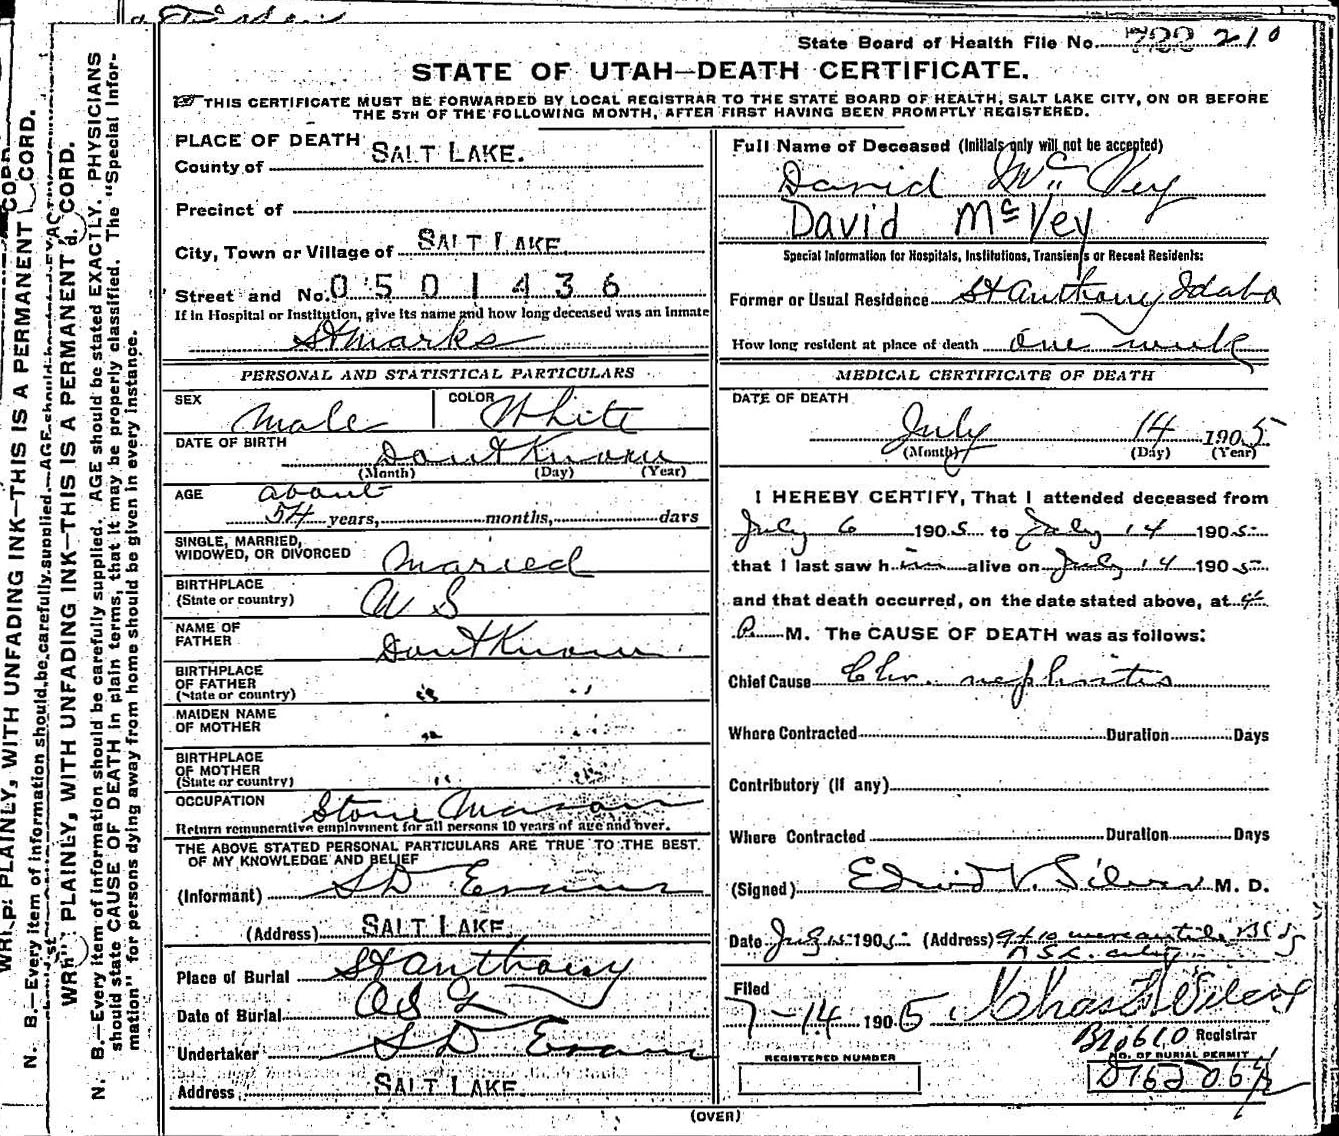 State Board of Health File No. 210
STATE OF UTAH—DEATH CERTIFICATE.
THIS CERTIFICATE MUST BE FORWARDED BY LOCAL REGISTRAR TO THE STATE BOARD OF HEALTH, SALT LAKE CITY, ON OR BEFORE
THE 5TH OF THE FOLLOWING MONTH, AFTER FIRST HAVING BEEN PROMPTLY REGISTERED.
PLACE OF DEATH
County of SALT LAKE.
Precinct of
City, Town or Village of SALT LAKE
Street and No. 0501436
If in Hospital or Institution, give its name and how long deceased was an inmate
St Marks
PERSONAL AND STATISTICAL PARTICULARS
SEX Male COLOR White
DATE OF BIRTH Dont Know
(Month) (Day) (Year)
AGE about
54 years, months, days
SINGLE, MARRIED,
WIDOWED, OR DIVORCED Maried
BIRTHPLACE
(State or country) U S
NAME OF
FATHER Dont Know
BIRTHPLACE
OF FATHER
(State or country) " "
MAIDEN NAME
OF MOTHER "
BIRTHPLACE
OF MOTHER
(State or country) "
OCCUPATION Stone Mason
Return remunerative employment for all persons 10 years of age and over.
THE ABOVE STATED PERSONAL PARTICULARS ARE TRUE TO THE BEST
OF MY KNOWLEDGE AND BELIEF
(Informant) S D Evans
(Address) SALT LAKE
Place of Burial St Anthony
Date of Burial
Undertaker S D Evans
Address SALT LAKE
Full Name of Deceased (Initials only will not be accepted)
David McVey
David McVey
Special Information for Hospitals, Institutions, Transients or Recent Residents:
Former or Usual Residence St Anthony Idaho
How long resident at place of death one week
MEDICAL CERTIFICATE OF DEATH
DATE OF DEATH
July 14 1905
(Month) (Day) (Year)
I HEREBY CERTIFY, That I attended deceased from
July 6 1905 to July 14 1905
that I last saw him alive on July 14 1905
and that death occurred, on the date stated above, at 4
P. M. The CAUSE OF DEATH was as follows:
Chief Cause Chr. nephritis
Where Contracted Duration Days
Contributory (if any)
Where Contracted Duration Days
(Signed) Edwin V. Silver M. D.
Date July 15 1905 (Address) 9 & 10 mercantile Blg
S L. city
Filed
7-14 1905 Chas Wilcox
Registrar
B20610
REGISTERED NUMBER
NO. OF BURIAL PERMIT
(OVER)
WRITE PLAINLY, WITH UNFADING INK—THIS IS A PERMANENT RECORD.
N. B.—Every item of information should be carefully supplied. AGE should be stated EXACTLY. PHYSICIANS
should state CAUSE OF DEATH in plain terms, that it may be properly classified. The "Special Infor-
mation" for persons dying away from home should be given in every instance.